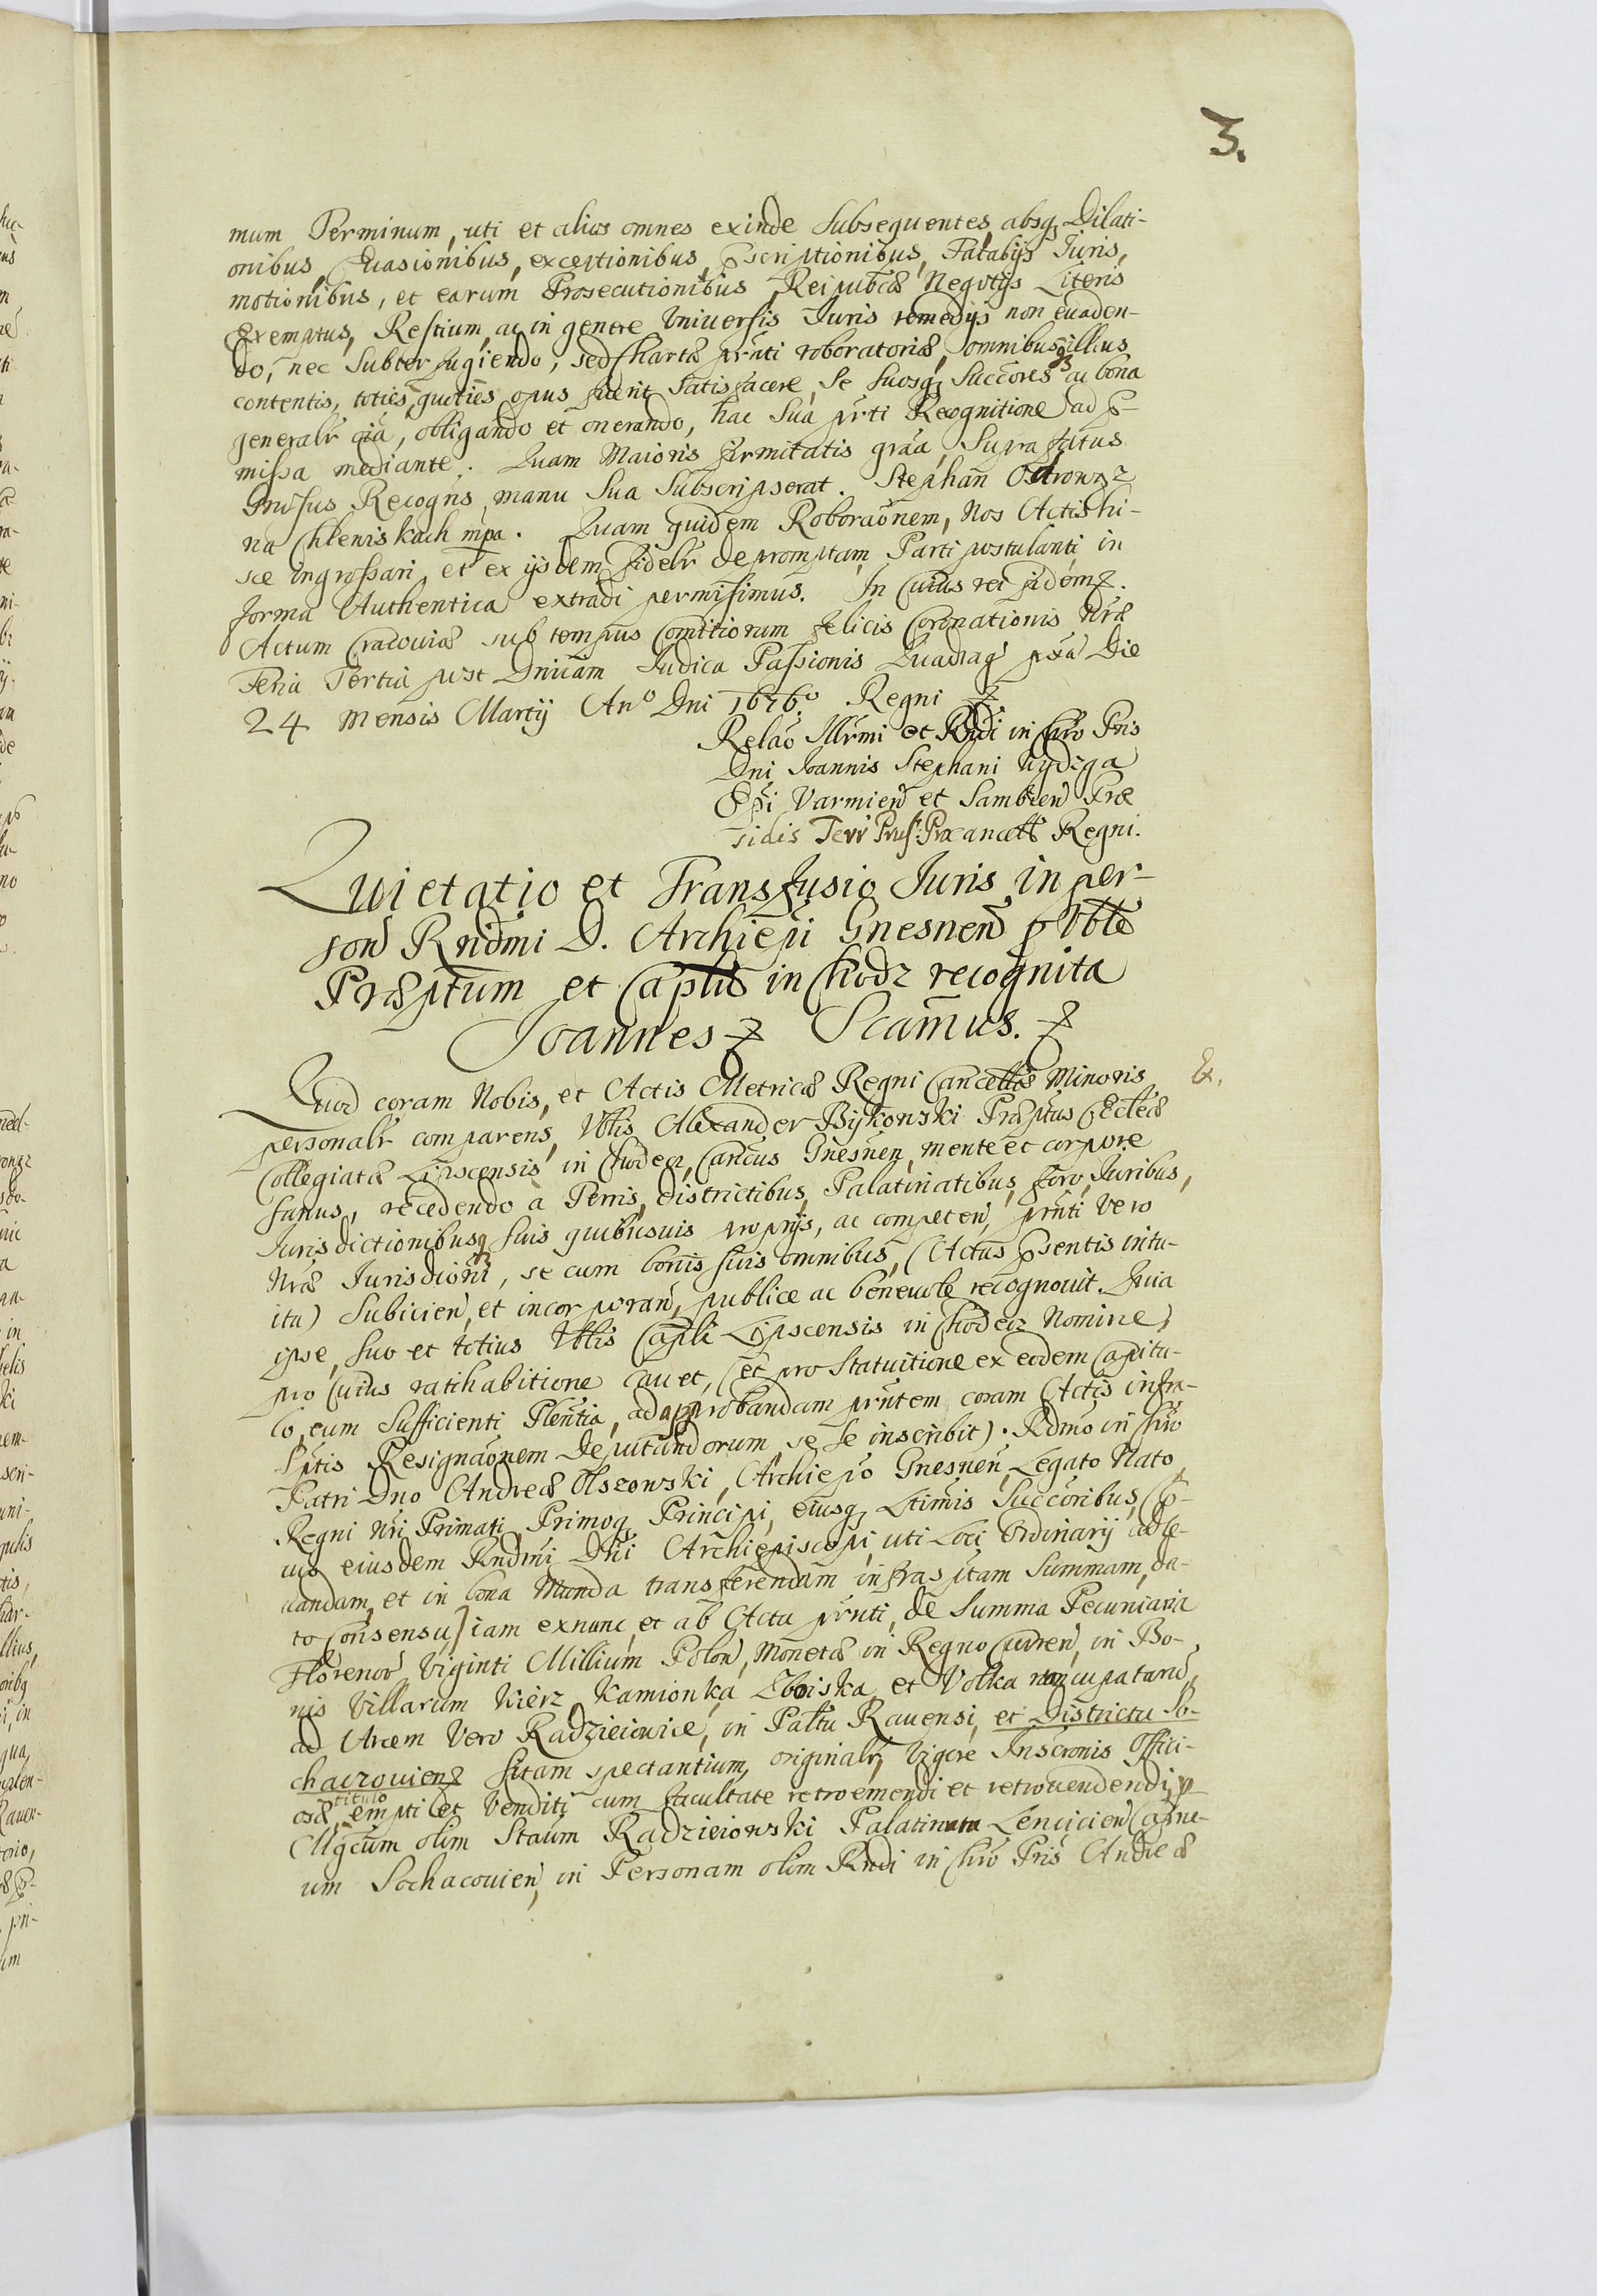 3.
mum Terminum, uti et alios omnes exinde subsequentes, absq; Dilati-
onibus, Euasionibus, exceptionibus, pscriptionibus, Fatalijs Iuris,
motionibus, et earum Prosecutionibus, Reipublcæ Negotijs Literis
Exemptus, Restium, ac in genere Vniuersis Iuris remedijs non euaden-
do, nec subterfugiendo, sed Chartæ prnti roboratoriæ, omnibusq illius
contentis, toties, quoties opus fuerit satisfacere, se suosq; Succores ac bona
generalr oia, obligando et onerando, hac sua prti Recognitione ad p-
missa mediante. Quam Maioris firmitatis graa, Supra fatus
Gnrosus Recogns, manu sua subscripserat. Stephan Ostrow z
na Chleniskach mpa. Quam quidem Roboraonem, Nos Actis hi-
sce ingrossari, et ex ijsdem fidelr depromptam, Parti postulanti in
forma Authentica extradi permisimus. In Cuius rei fidem z.
Actum Cracouiæ sub tempus Comitiorum felicis Coronationis Nræ
Feria Tertia post Dnicam Iudica Passionis Quadrag pxa Die
24 mensis Martij Ano Dni 1676o Regni z
Relao Illrmi et Rndi in Chro Pris
Dni Ioannis Stephani Wydzga
Eppi Varmien et Sambien Præ
sidis Terr Prus: Procancell Regni.
Quietatio et Transfusio Iuris in per-
son Rndmi D. Archiepi Gnesnen p Vble
Præptum et Caplu in Chodz recognita
Ioannes z Scamus. z
Quod coram Nobis, et Actis Metricæ Regni Cancellæ Minoris &.
personalr comparens, Vblis Alexander Bykowski Præptus Eccleæ
Collegiatæ Lipscensis in Chodecz, Cancus Gnesnen, mente et corpore
sanus, recedendo à Terris, districtibus, Palatinatibus, foro, Iuribus,
Iurisdictionibusq suis quibusuis proprijs, ac competen, prnti Vero
Nræ Iurisdioni, se cum bonis suis omnibus, (Actus psentis intu-
itu) Subicien, et incorporan, publice ac beneuole recognouit. Quia
ipse, suo et totius Vblis Capli Lipscensis in Chodecz Nomine,
pro Cuius ratihabitione cauet, (et pro Statuitione ex eodem Capitu-
lo, cum Sufficienti Plentia, ad approbandam prntem coram Actis infra-
sptis Resignaonem Deputandorum se se inscribit). Rdmo in Chro
Patri Dno Andreæ Olszowski, Archiepo Gnesnen, Legato Nato,
Regni Nri Primati, Primoq Principi, eiusq; Ltimis Succoribus, (p-
uio eiusdem Rndmi Dni Archiepiscopi, uti Loci Ordinarij ad le-
uandam, et in bona Munda transferendam infrasptam Summam, da-
to Consensu) iam exnunc, et ab Actu prnti, de Summa Pecuniaria
Florenor Viginti Millium Polon, Monetæ in Regno Curren, in Bo-
nis Villarum Kierz, Kamionka, Zboiska, et Volka nuncupatarū,
ad Arcem Vero Radzieiowice, in Paltu Rauensi, et Districtu So-
chaczouien z sitam spectantium, originalr, Vigore Inscronis Offici-
osæ titulo empti et Venditi cum facultate retroemendi et retrouendendi, p
Mgcum olim Staum Radzieiowski Palatinum Lencicien Capne-
um Sochacouien, in Personam olim Rndi in Chro Pris Andreæ